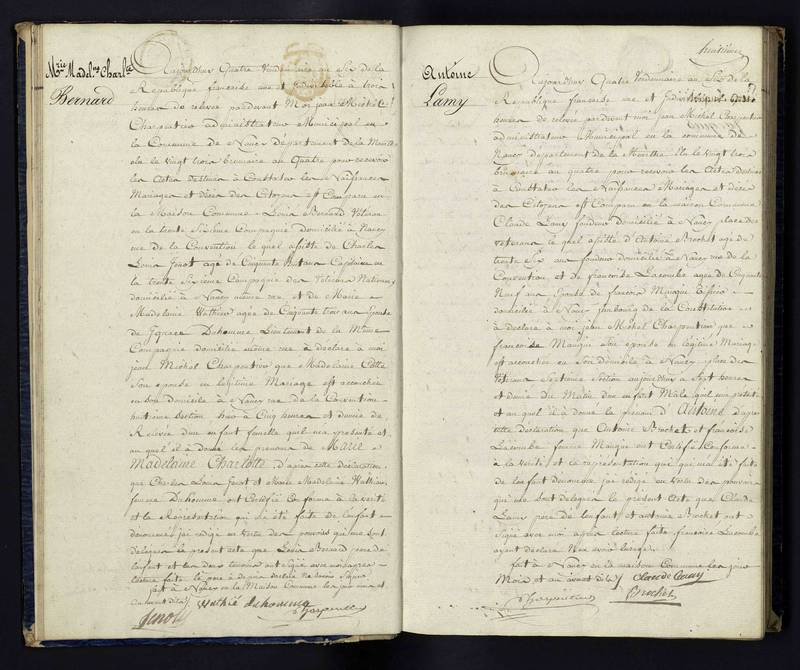 Mrie Madelne Charltte
Bernard
Aujourdhui Quatre Vendemiaire an Six de la
République francaise une et Indivisible à trois
heures de relevee pardevant Moi jean Michel
Charpentier administrateur Municipal en
la Commune de Nancy Département de la Meurthe
élu le vingt trois brumaire an Quatre pour recevoir
les Actes destinés à Constater les Naissances
Mariages et décès des Citoyens est Comparu en
la Maison Commune Louis Bernard Véteran
en la trente Sixieme Compagnie domicilié à Nancy
rue de la Convention lequel assisté de Charles
Louis Jenot agé de Cinquante huit ans Capitaine en
la trente Sixieme Compagnie des Véterans Nationaux
domicilié à Nancy même rue et de Marie
Madelaine Wathier agée de Cinquante trois ans Epouse
de Ignace Duhomme Lieutenant de la Même
Compagnie domicilié même rue à déclaré à moi
jean Michel Charpentier que Madelaine Cotte
Son epouse en legitime Mariage est accouchée
en son domicile à Nancy rue de la Convention
huitieme Section hier à Cinq heures et demie de
Relevée d'un enfant femelle qu'il m'a presenté et
au quel il à donné les prenoms de Marie
Madelaine Charlotte, d'apres cette déclaration
que Charles Louis Jenot et Marie Madelaine Wathier
femme Duhomme ont Certifié Conforme à la verité
et la Représentation qui m'a été faite de l'enfant
denommé j'ai rédigé en Vertu des pouvoirs qui me sont
delegués le present acte que Louis Bernard pere de
l'enfant et les deux temoins ont signé avec moi apres
lecture faite le pere à de declaré ne savoir Signer
fait à Nancy en la Maison Commune les jour mois et
an avant dits
Wathié duhomme
Jenot
Charpentier
huitieme
Antoine
Lamy
Aujourdhui Quatre Vendemiaire an Six de la
République francaise une et Indivisible à trois
heures de relevee pardevant moi jean Michel Charpentier
administrateur Municipal en la commune de
Nancy département de la Meurthe élu le vingt trois
brumaire an quatre pour recevoir les Actes destinés
à Constater les Naissances Mariages et décès
des Citoyens est Comparu en la maison Commune
Claude Lamy fondeur domicilié à Nancy place des
veterans lequel assisté d'Antoine Brochet agé de
trente six ans fondeur domicilié à Nancy rue de la
Convention et de francoise Lacombe agée de Cinquante
Neuf ans Epouse de francois Mangin
domiciliée à Nancy fauxbourg de la Constitution
à déclaré à moi jean Michel Charpentier que
francoise Mangin Son epouse en légitime Mariage
est accouchée en son domicile à Nancy place des
Véterans Septieme Section aujourdhui à Sept heures
et demie du Matin d'un enfant Male qu'il m'a presenté
et au quel il à donné le prenom d'Antoine d'apres
cette déclaration que Antoine Brochet et francoise
Lacombe femme Mangin ont Certifié Conforme
à la Vérité et la représentation qui m'a été faite
de l'enfant denommé j'ai redigé en Vertu des pouvoirs
qui me sont delegués le present Acte que Claude
Lamy pere de l'enfant et Antoine Brochet ont
Signé avec moi apres lecture faite francoise Lacombe
ayant déclaré N'en avoir l'usage
fait à Nancy en la maison Commune les jour
Mois et an avant dits
Claude Lamy
Charpentier
Brochet